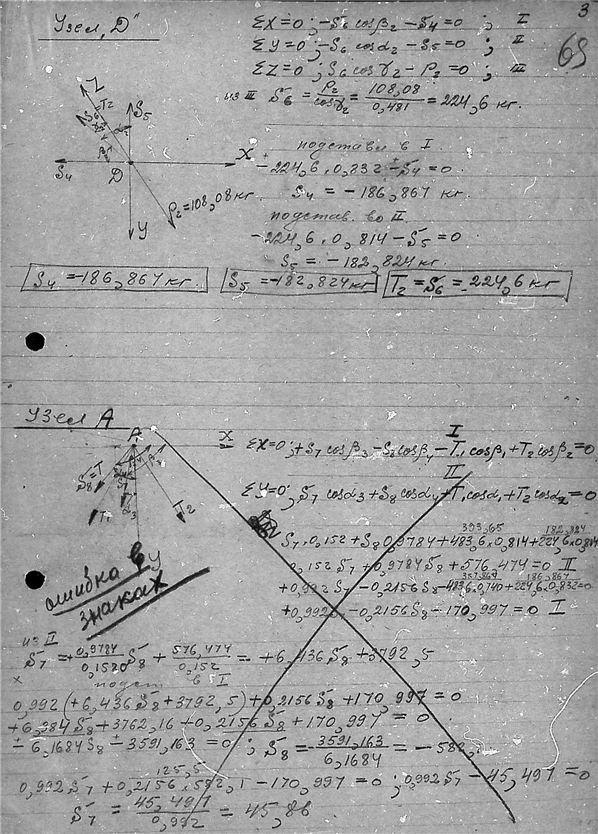 3
69
Узел „D"
ΣX=0; -S6 cosβ2 - S4 = 0 ; I
ΣY=0; -S6 cosα2 - S5 = 0 ; II
ΣZ=0; S6 cosγ2 - P2 = 0 ; III
из III S6 = P2/cosγ2 = 108,08/0,481 = 224,6 кг.
Z
S6=T2
S5
X
S4
D
Y
P2=108,08 кг
подставл в I
-224,6·0,832 - S4 = 0
S4 = -186,867 кг.
подстав. во II
-224,6·0,814 - S5 = 0
S5 = -182,824 кг.
S4 = -186,867 кг.
S5 = -182,824 кг
T2 = S6 = 224,6 кг
узел А
A
X
S8=T
T1
T2
Y
I
ΣX=0; +S7 cosβ3 - S8 cosβ4 - T1 cosβ1 + T2 cosβ2 = 0
II
ΣY=0; S7 cosα3 + S8 cosα4 + T1 cosα1 + T2 cosα2 = 0
393,65 182,824
S7·0,152 + S8 0,9784 + 483,6·0,814 + 224,6·0,814
0,152 S7 + 0,9784 S8 + 576,474 = 0 II
357,864 186,867
+0,992 S7 - 0,2156 S8 - 483,6·0,740 + 224,6·0,832 = 0
+0,992 S7 - 0,2156 S8 - 170,997 = 0 I
ошибка в
знаках
из II
S7 = + 0,9784/0,1520 S8 + 576,474/0,152 = +6,436 S8 + 3792,5
подст в I
0,992(+6,436 S8 + 3792,5) + 0,2156 S8 + 170,997 = 0
+6,384 S8 + 3762,16 + 0,2156 S8 + 170,997 = 0
- 6,1684 S8 + 3591,163 = 0 ; S8 = 3591,163/6,1684 = -582,1
125,5
0,992 S7 + 0,2156·582,1 - 170,997 = 0 ; 0,992 S7 - 45,497 = 0
S7 = 45,497/0,992 = 45,86